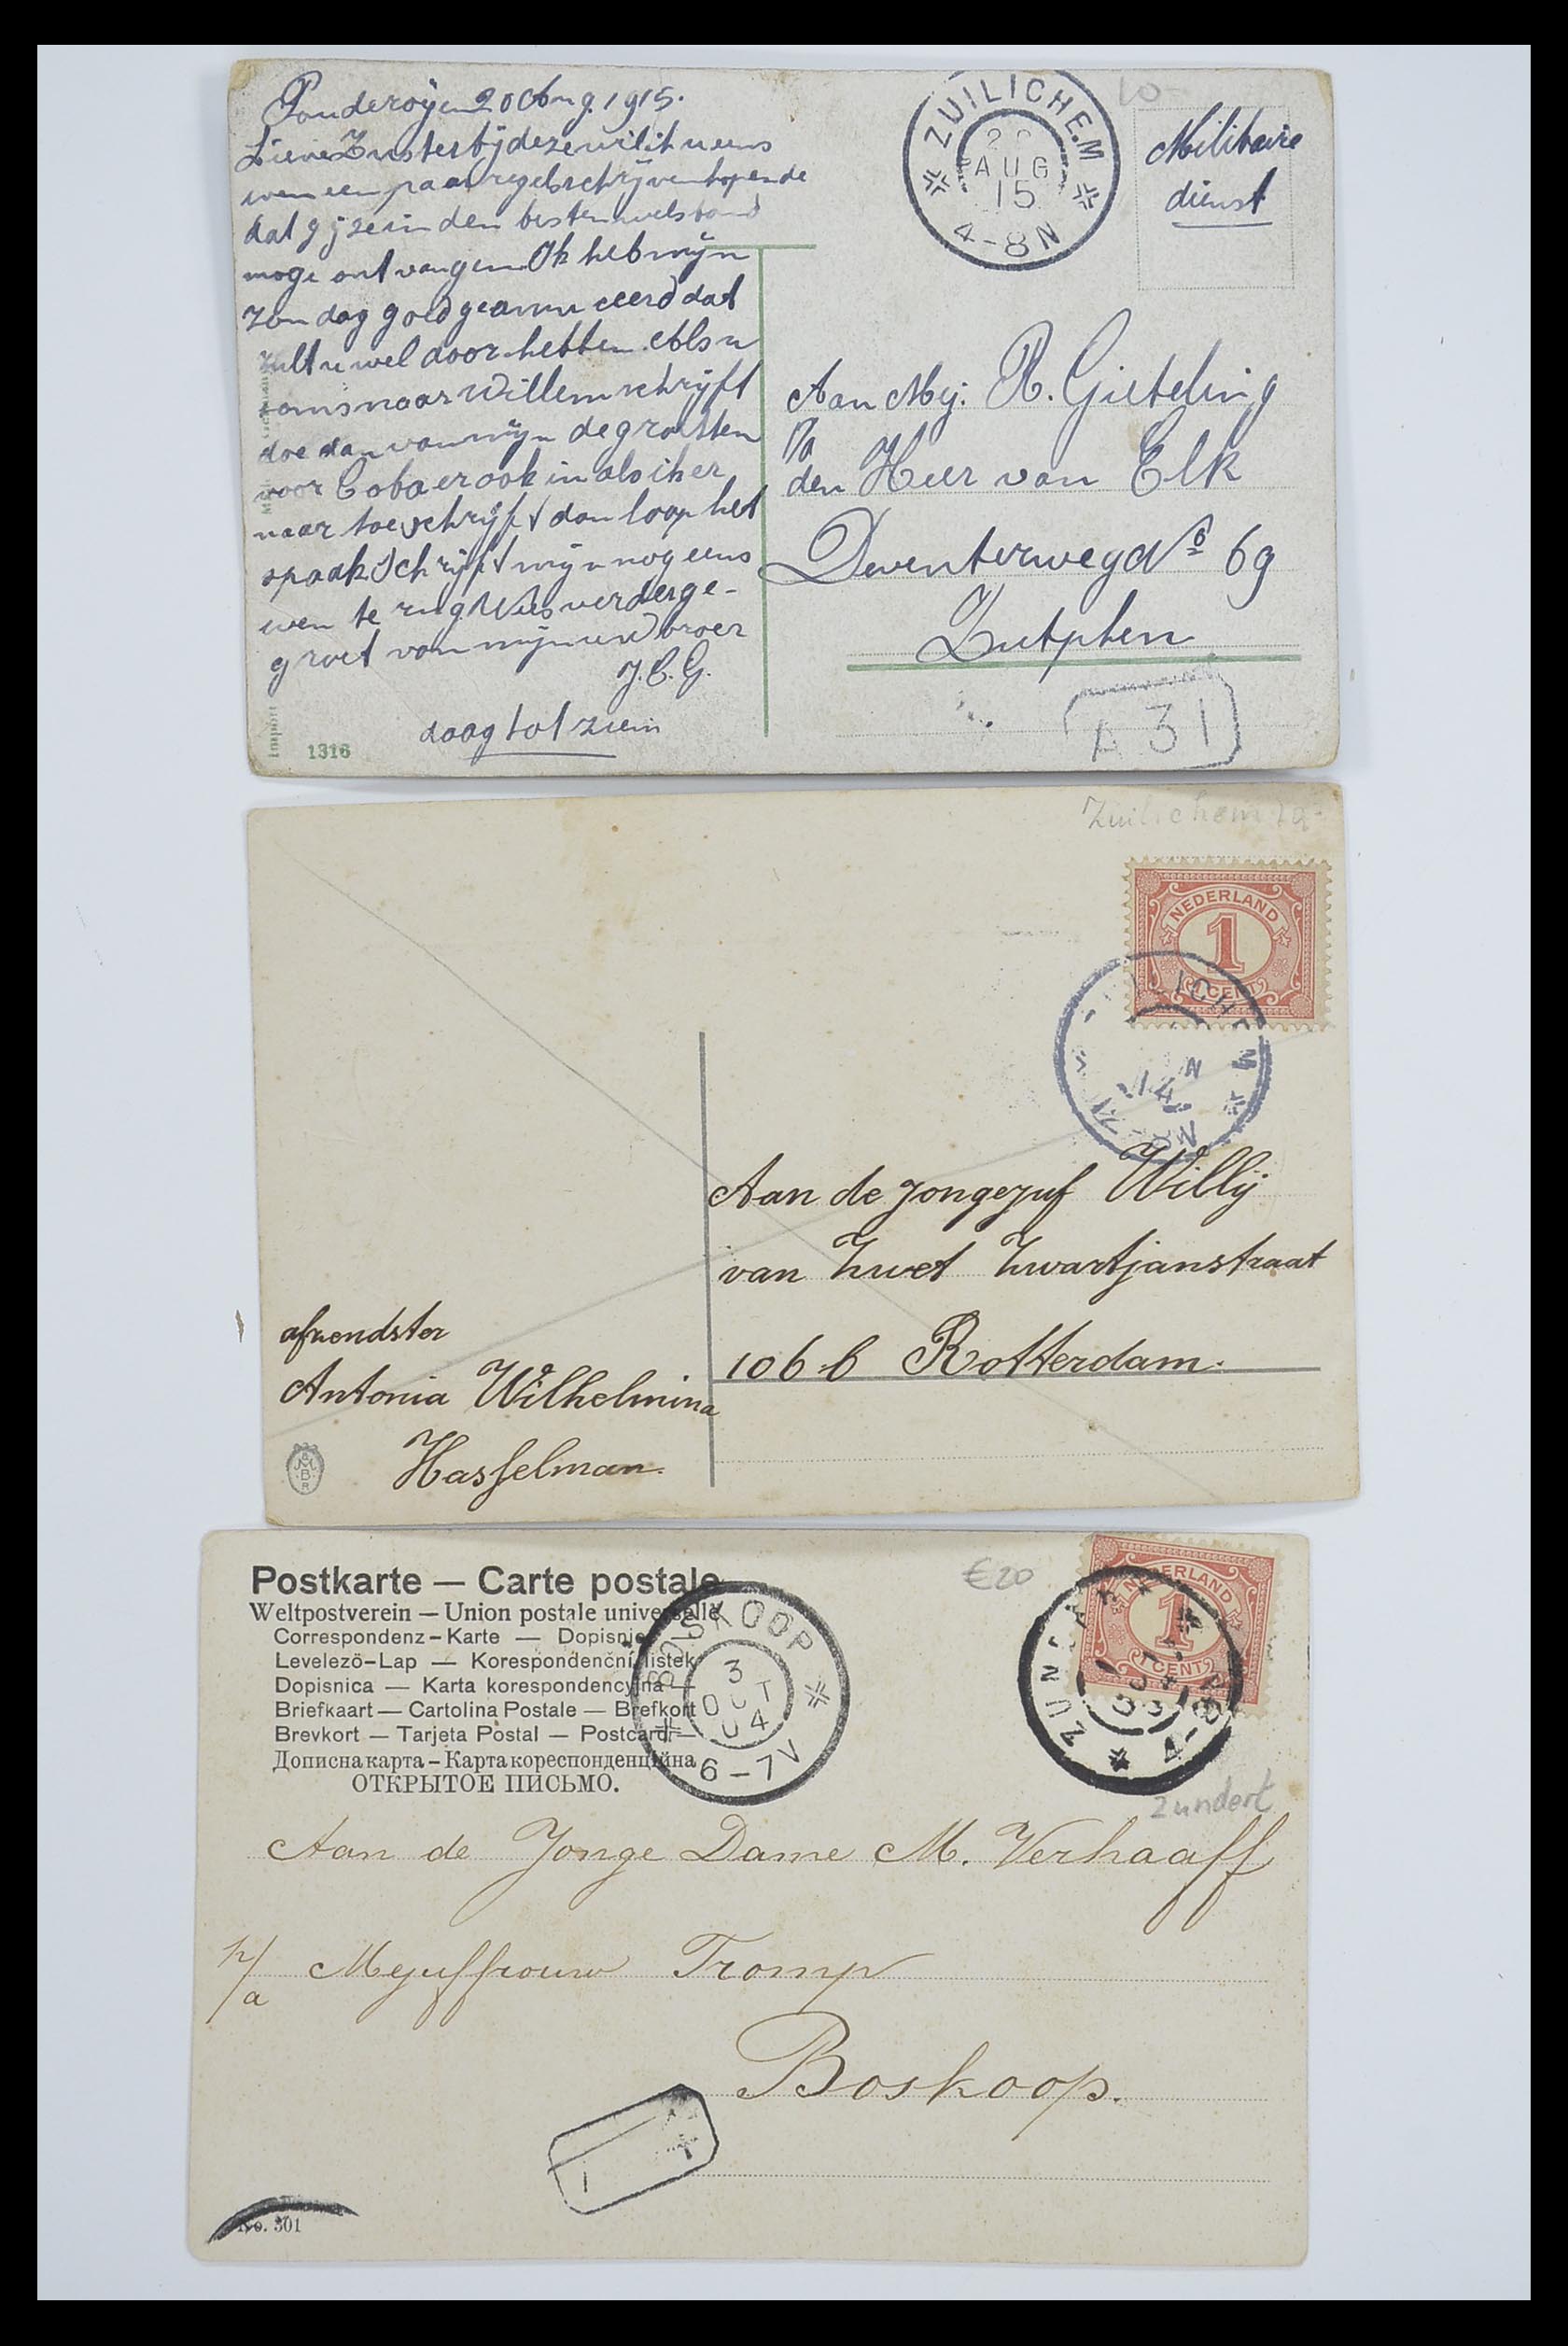 Ponderoijen 20 Aug. 1915.
Lieve Zuster bij deze wil ik u eens
even een paar regels schrijven hopende
dat gij ze in den besten welstand
moge ontvangen. Ik heb mijn
Zondag goed geamuseerd dat
zult u wel door hebben. Als u
soms naar Willem schrijft
doe dan van mijn de groetten
voor Coba er ook in als ik er
naar toe schrijft dan loop het
spaak Schrijft mijn nog eens
even te rug Wees verder ge-
groet van mijn uw broer
J.C.G.
daag tot zien
Import
1316
ZUILICHEM
20
AUG
15
4-8N
10-
Militaire
dienst
Aan Mej. R. Gieteling
P/a
den Heer van Elk
Deventerweg No 69
Zutphen
A 31
Zuilichem
NEDERLAND
1
1 CENT
Aan de jongejuf Willij
van Zwet Zwartjanstraat
106 b Rotterdam.
afzendster
Antonia Wilhelmina
Hasselman.
Postkarte — Carte postale
Weltpostverein — Union postale universelle
Correspondenz-Karte — Dopisnice
Levelező-Lap — Korespondenční lístek
Dopisnica — Karta korespondencyjna —
Briefkaart — Cartolina Postale — Brefkort
Brevkort — Tarjeta Postal — Postcard —
Дописна карта – Карта кореспонденційна
ОТКРЫТОЕ ПИСЬМО.
BOSKOOP
3
OCT
04
6-7V
€20
NEDERLAND
1
1 CENT
zundert
Aan de Jonge Dame M. Verhaaff
p/a Mejuffrouw Tromp
Boskoop.
No. 301